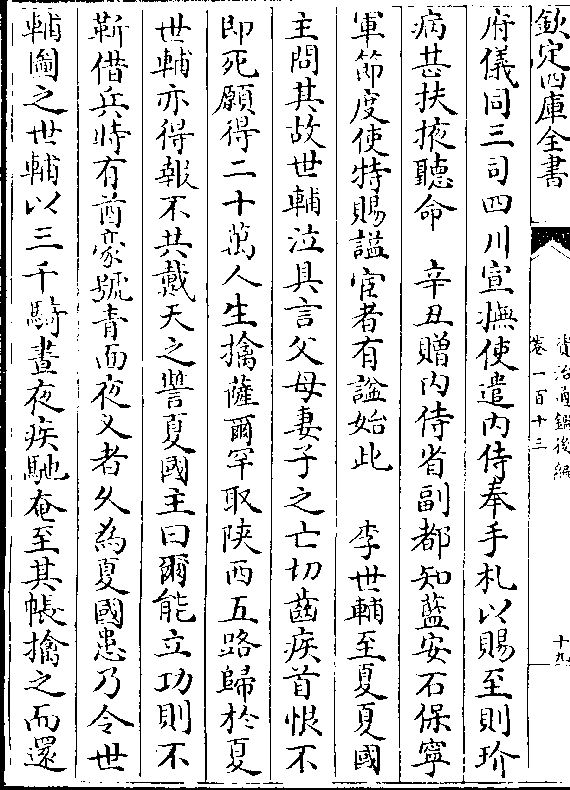 欽定四庫全書
資治通鑑後編
卷一百十三
十九
府儀同三司四川宣撫使遣内侍奉手札以賜至則玠
病甚扶掖聽命　辛丑贈内侍省副都知藍安石保寧
軍節度使特賜諡宦者有諡始此　李世輔至夏夏國
主問其故世輔泣具言父母妻子之亡切齒疾首恨不
即死願得二十萬人生擒薩爾罕取陜西五路歸於夏
世輔亦得報不共戴天之讐夏國主曰爾能立功則不
靳借兵時有酋豪號青面夜叉者久為夏國患乃令世
輔圖之世輔以三千騎晝夜疾馳奄至其帳擒之而還